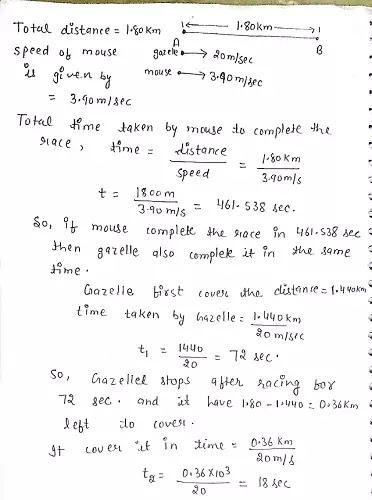 Total distance = 1.80km
1.80km
A
B
speed of mouse
gazele → 20m/sec
is given by
mouse → 3.90m/sec
= 3.90m/sec
Total time taken by mouse to complete the
race, time = distance / speed = 1.80km / 3.90m/s
t = 1800m / 3.90m/s = 461.538 sec.
So, if mouse complete the race in 461.538 sec
then gazelle also complete it in the same
time.
Gazelle first cover the distance = 1.440km
time taken by Gazelle = 1.440km / 20m/sec
t1 = 1440 / 20 = 72 sec.
So, Gazellel stops after racing for
72 sec. and it have 1.80 - 1.440 = 0.36Km
left to cover.
It cover it in time = 0.36 Km / 20m/s
t2 = 0.36×10³ / 20 = 18 sec